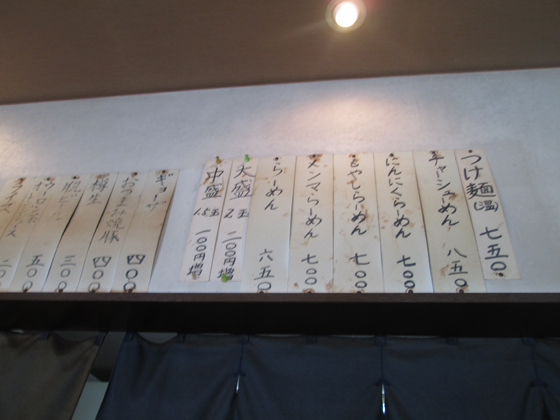 つけ麺(温) 七五〇
チャーシューめん 八五〇
にんにくらーめん 七〇〇
もやしらーめん 七〇〇
メンマらーめん 七〇〇
らーめん 六五〇
大盛 2玉 二〇〇円増
中盛 1.5玉 一〇〇円増
ギョーザ 四〇〇
おつまみ焼豚 四〇〇
梅生 四〇〇
瓶ビール
五〇〇
ライス